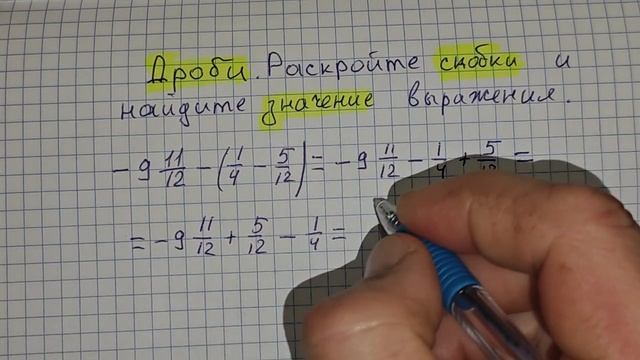 Дроби. Раскройте скобки и
найдите значение выражения.
-9 11/12 - (1/4 - 5/12) = -9 11/12 - 1/4 + 5/12 =
= -9 11/12 + 5/12 - 1/4 =